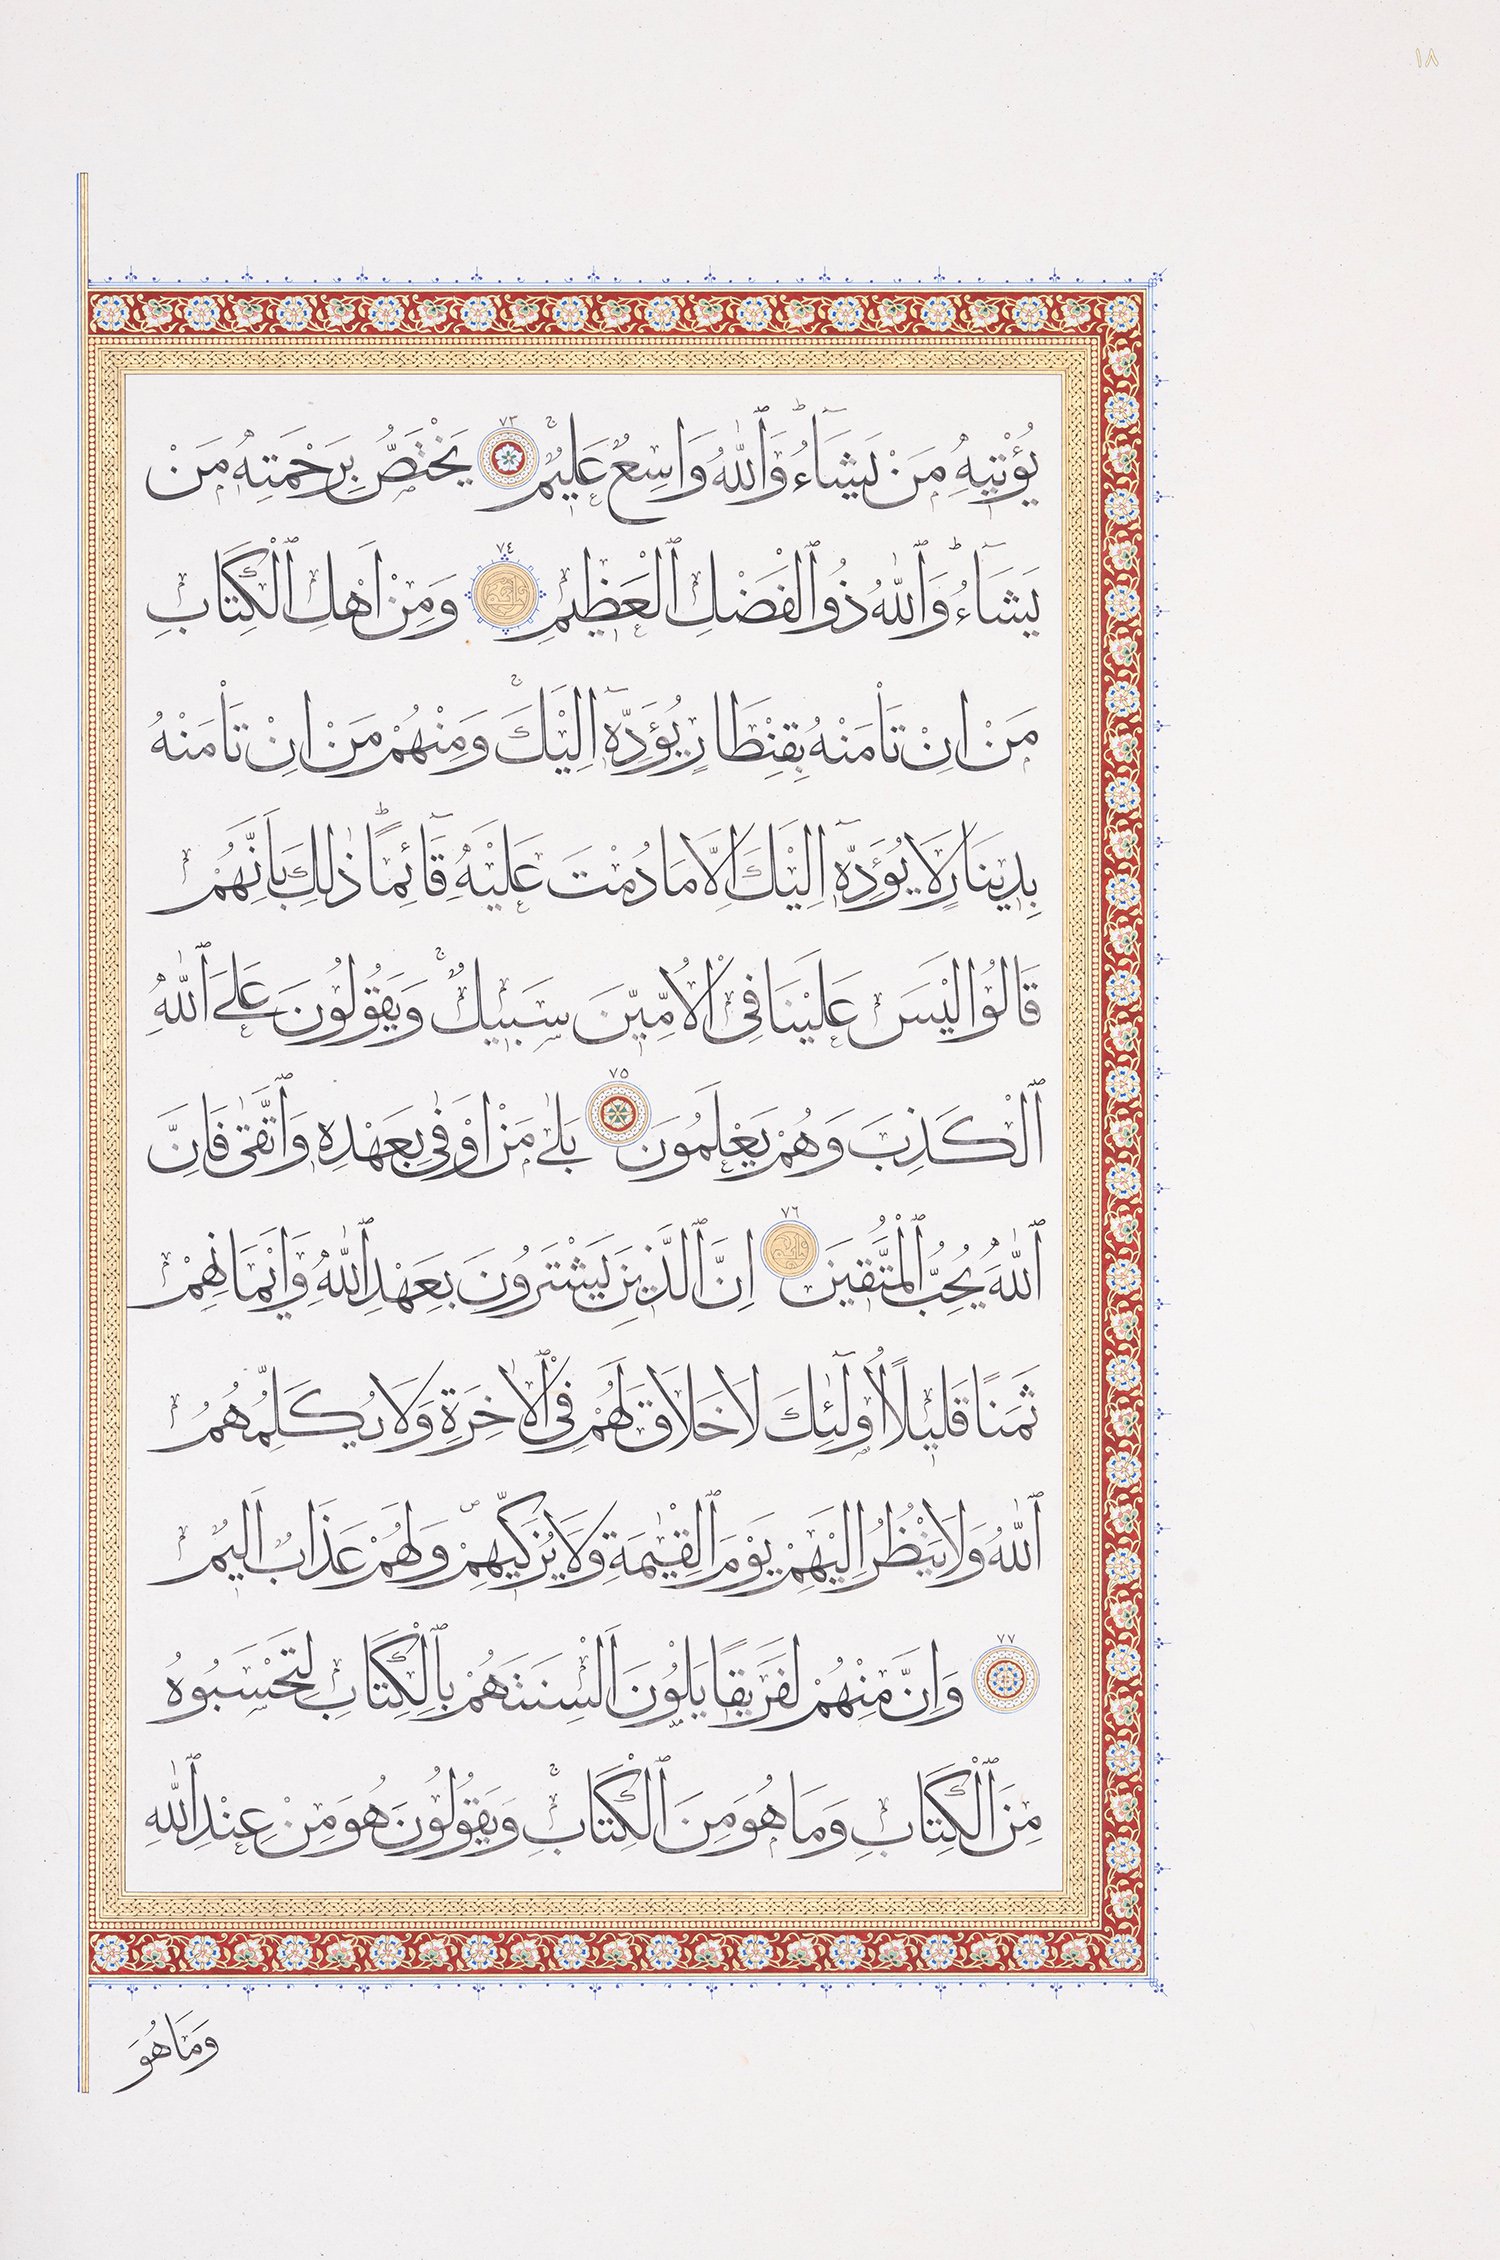 ١٨
يُؤْتِيهِ مَنْ يَشَآءُ ۗ وَٱللّٰهُ وَاسِعٌ عَلِيمٌ ۚ ٧٣ يَخْتَصُّ بِرَحْمَتِهِ مَنْ
يَشَآءُ ۗ وَٱللّٰهُ ذُو ٱلْفَضْلِ ٱلْعَظِيمِ ٧٤ وَمِنْ اَهْلِ ٱلْكِتَابِ
مَنْ اِنْ تَأْمَنْهُ بِقِنْطَارٍ يُؤَدِّهِٓ اِلَيْكَ ۚ وَمِنْهُمْ مَنْ اِنْ تَأْمَنْهُ
بِدِينَارٍ لَا يُؤَدِّهِٓ اِلَيْكَ اِلَّا مَا دُمْتَ عَلَيْهِ قَآئِمًا ۗ ذٰلِكَ بِاَنَّهُمْ
قَالُوا لَيْسَ عَلَيْنَا فِى ٱلْاُمِّيِّنَ سَبِيلٌ ۚ وَيَقُولُونَ عَلَى ٱللّٰهِ
ٱلْكَذِبَ وَهُمْ يَعْلَمُونَ ٧٥ بَلٰى مَنْ اَوْفٰى بِعَهْدِهِ وَٱتَّقٰى فَاِنَّ
ٱللّٰهَ يُحِبُّ ٱلْمُتَّقِينَ ٧٦ اِنَّ ٱلَّذِينَ يَشْتَرُونَ بِعَهْدِ ٱللّٰهِ وَاَيْمَانِهِمْ
ثَمَنًا قَلِيلًا اُولٰٓئِكَ لَا خَلَاقَ لَهُمْ فِى ٱلْاٰخِرَةِ وَلَا يُكَلِّمُهُمُ
ٱللّٰهُ وَلَا يَنْظُرُ اِلَيْهِمْ يَوْمَ ٱلْقِيٰمَةِ وَلَا يُزَكِّيهِمْ ۖ وَلَهُمْ عَذَابٌ اَلِيمٌ
٧٧ وَاِنَّ مِنْهُمْ لَفَرِيقًا يَلْوُنَ اَلْسِنَتَهُمْ بِٱلْكِتَابِ لِتَحْسَبُوهُ
مِنَ ٱلْكِتَابِ وَمَا هُوَ مِنَ ٱلْكِتَابِ ۚ وَيَقُولُونَ هُوَ مِنْ عِنْدِ ٱللّٰهِ
وَمَا هُوَ